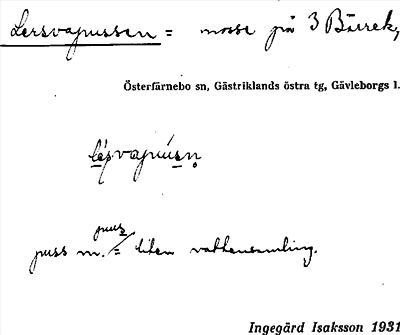 Lersvapussen = mosse på 3 Bärrek,
Österfärnebo sn, Gästriklands östra tg, Gävleborgs l.
puss m. = liten vattensamling.
Ingegärd Isaksson 1931